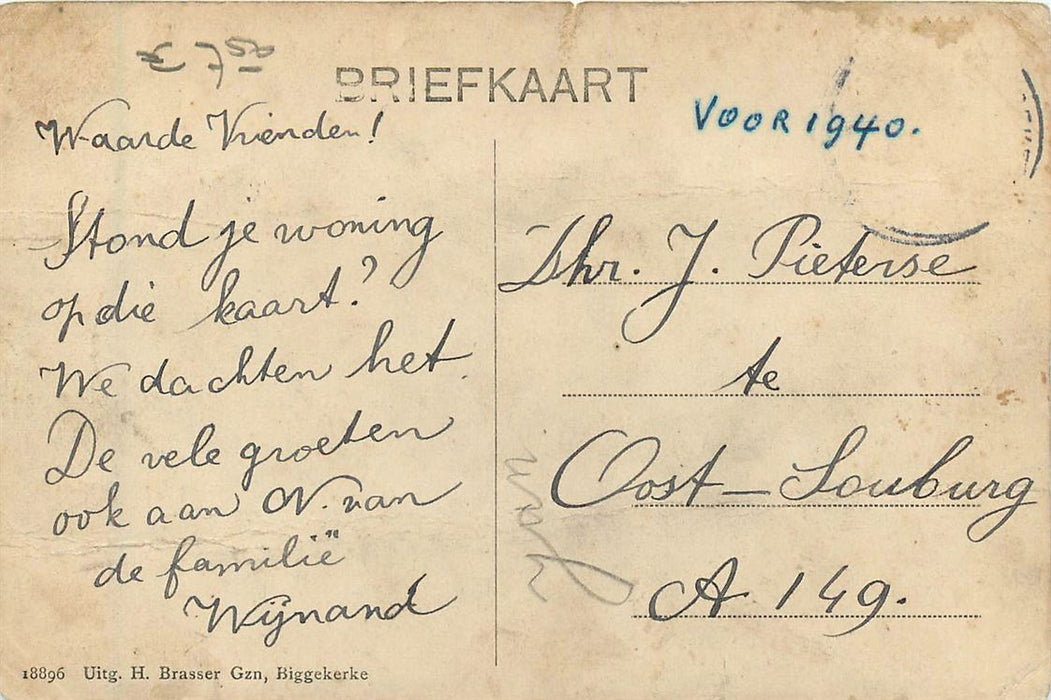 € 7 50
BRIEFKAART
VOOR 1940.
Waarde Vrienden!
Stond je woning
op die kaart?
We dachten het
De vele groeten
ook aan N. van
de familië
Wijnand
Dhr. J. Pieterse
te
Oost-Souburg
A 149.
18896 Uitg. H. Brasser Gzn, Biggekerke